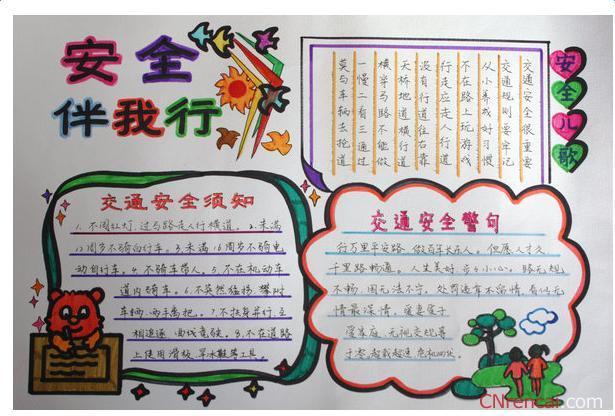 安全
伴我行
安全儿歌
交通安全很重要
交通规则要牢记
从小养成好习惯
不在路上玩游戏
行走应走人行道
没有行道往右靠
天桥地道横行道
横穿马路不能做
一慢二看三通过
莫与车辆去抢道
交通安全须知
1、不闯红灯,过马路走人行横道。2、未满
12周岁不骑自行车。3、未满16周岁不骑电
动自行车。4、不骑车带人。5、不在机动车
道内骑车。6、不突然猛拐,攀附
车辆、两手离把。7、不扶身并行、互
相追逐、曲线竞驶。8、不在道路
上使用滑板、旱冰鞋等工具。
交通安全警句
行万里平安路,做百年长乐人。但愿人才久,
千里路畅通。人生美好,步步小心。路无规
不畅,国无法不宁。处罚违章不留情,看似无
情最深情。爱妻爱子
爱家庭,无视交规等
于零。超载超速,危机四伏
CNrencai.com